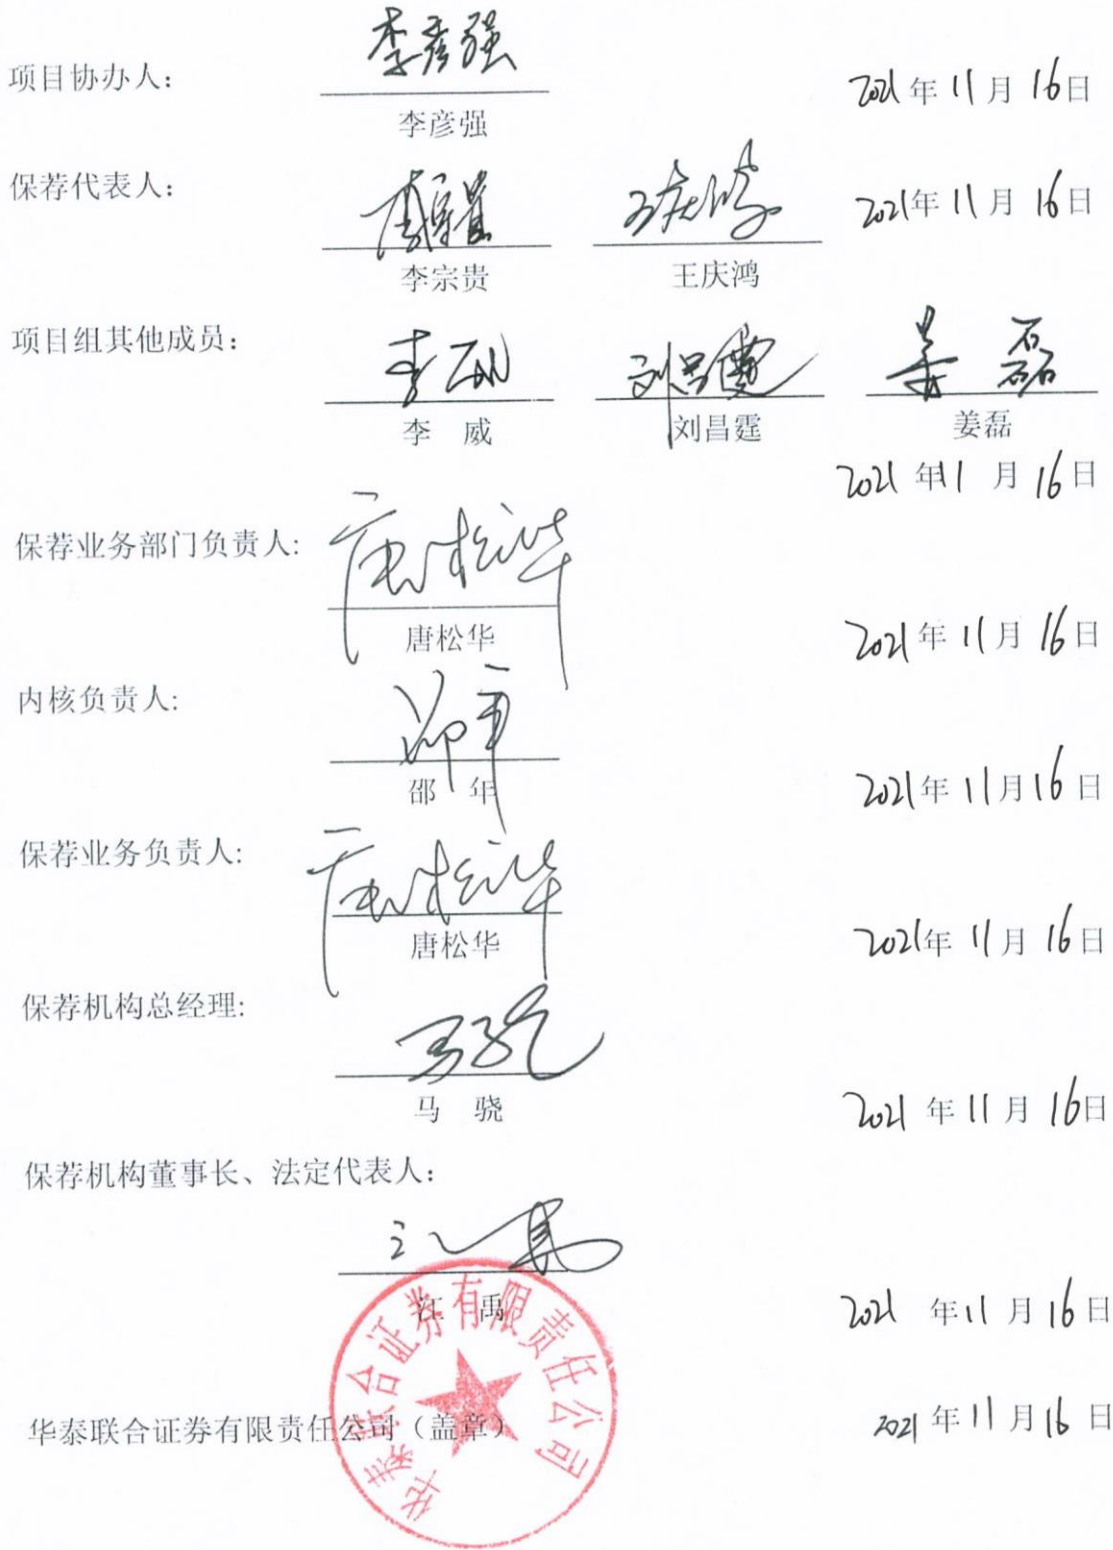 李彦强
项目协办人： 2021年11月16日
李彦强
保荐代表人： 李宗贵 王庆鸿 2021年11月16日
李宗贵 王庆鸿
项目组其他成员： 李威 刘昌霆 姜磊
李 威 刘昌霆 姜磊
2021年11月16日
保荐业务部门负责人: 唐松华
唐松华 2021年11月16日
内核负责人: 邵年
邵 年 2021年11月16日
保荐业务负责人: 唐松华
唐松华 2021年11月16日
保荐机构总经理: 马骁
马 骁 2021年11月16日
保荐机构董事长、法定代表人：
江禹
江 禹 2021年11月16日
华泰联合证券有限责任公司（盖章） 2021年11月16日
华泰联合证券有限责任公司